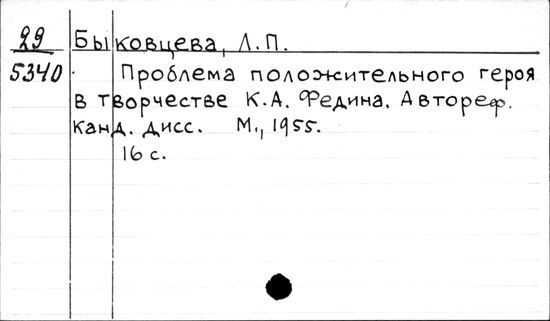 29 Быковцева, Л.П.
5340 Проблема положительного героя
в творчестве К.А. Федина. Автореф.
канд. дисс. М., 1955.
16 с.